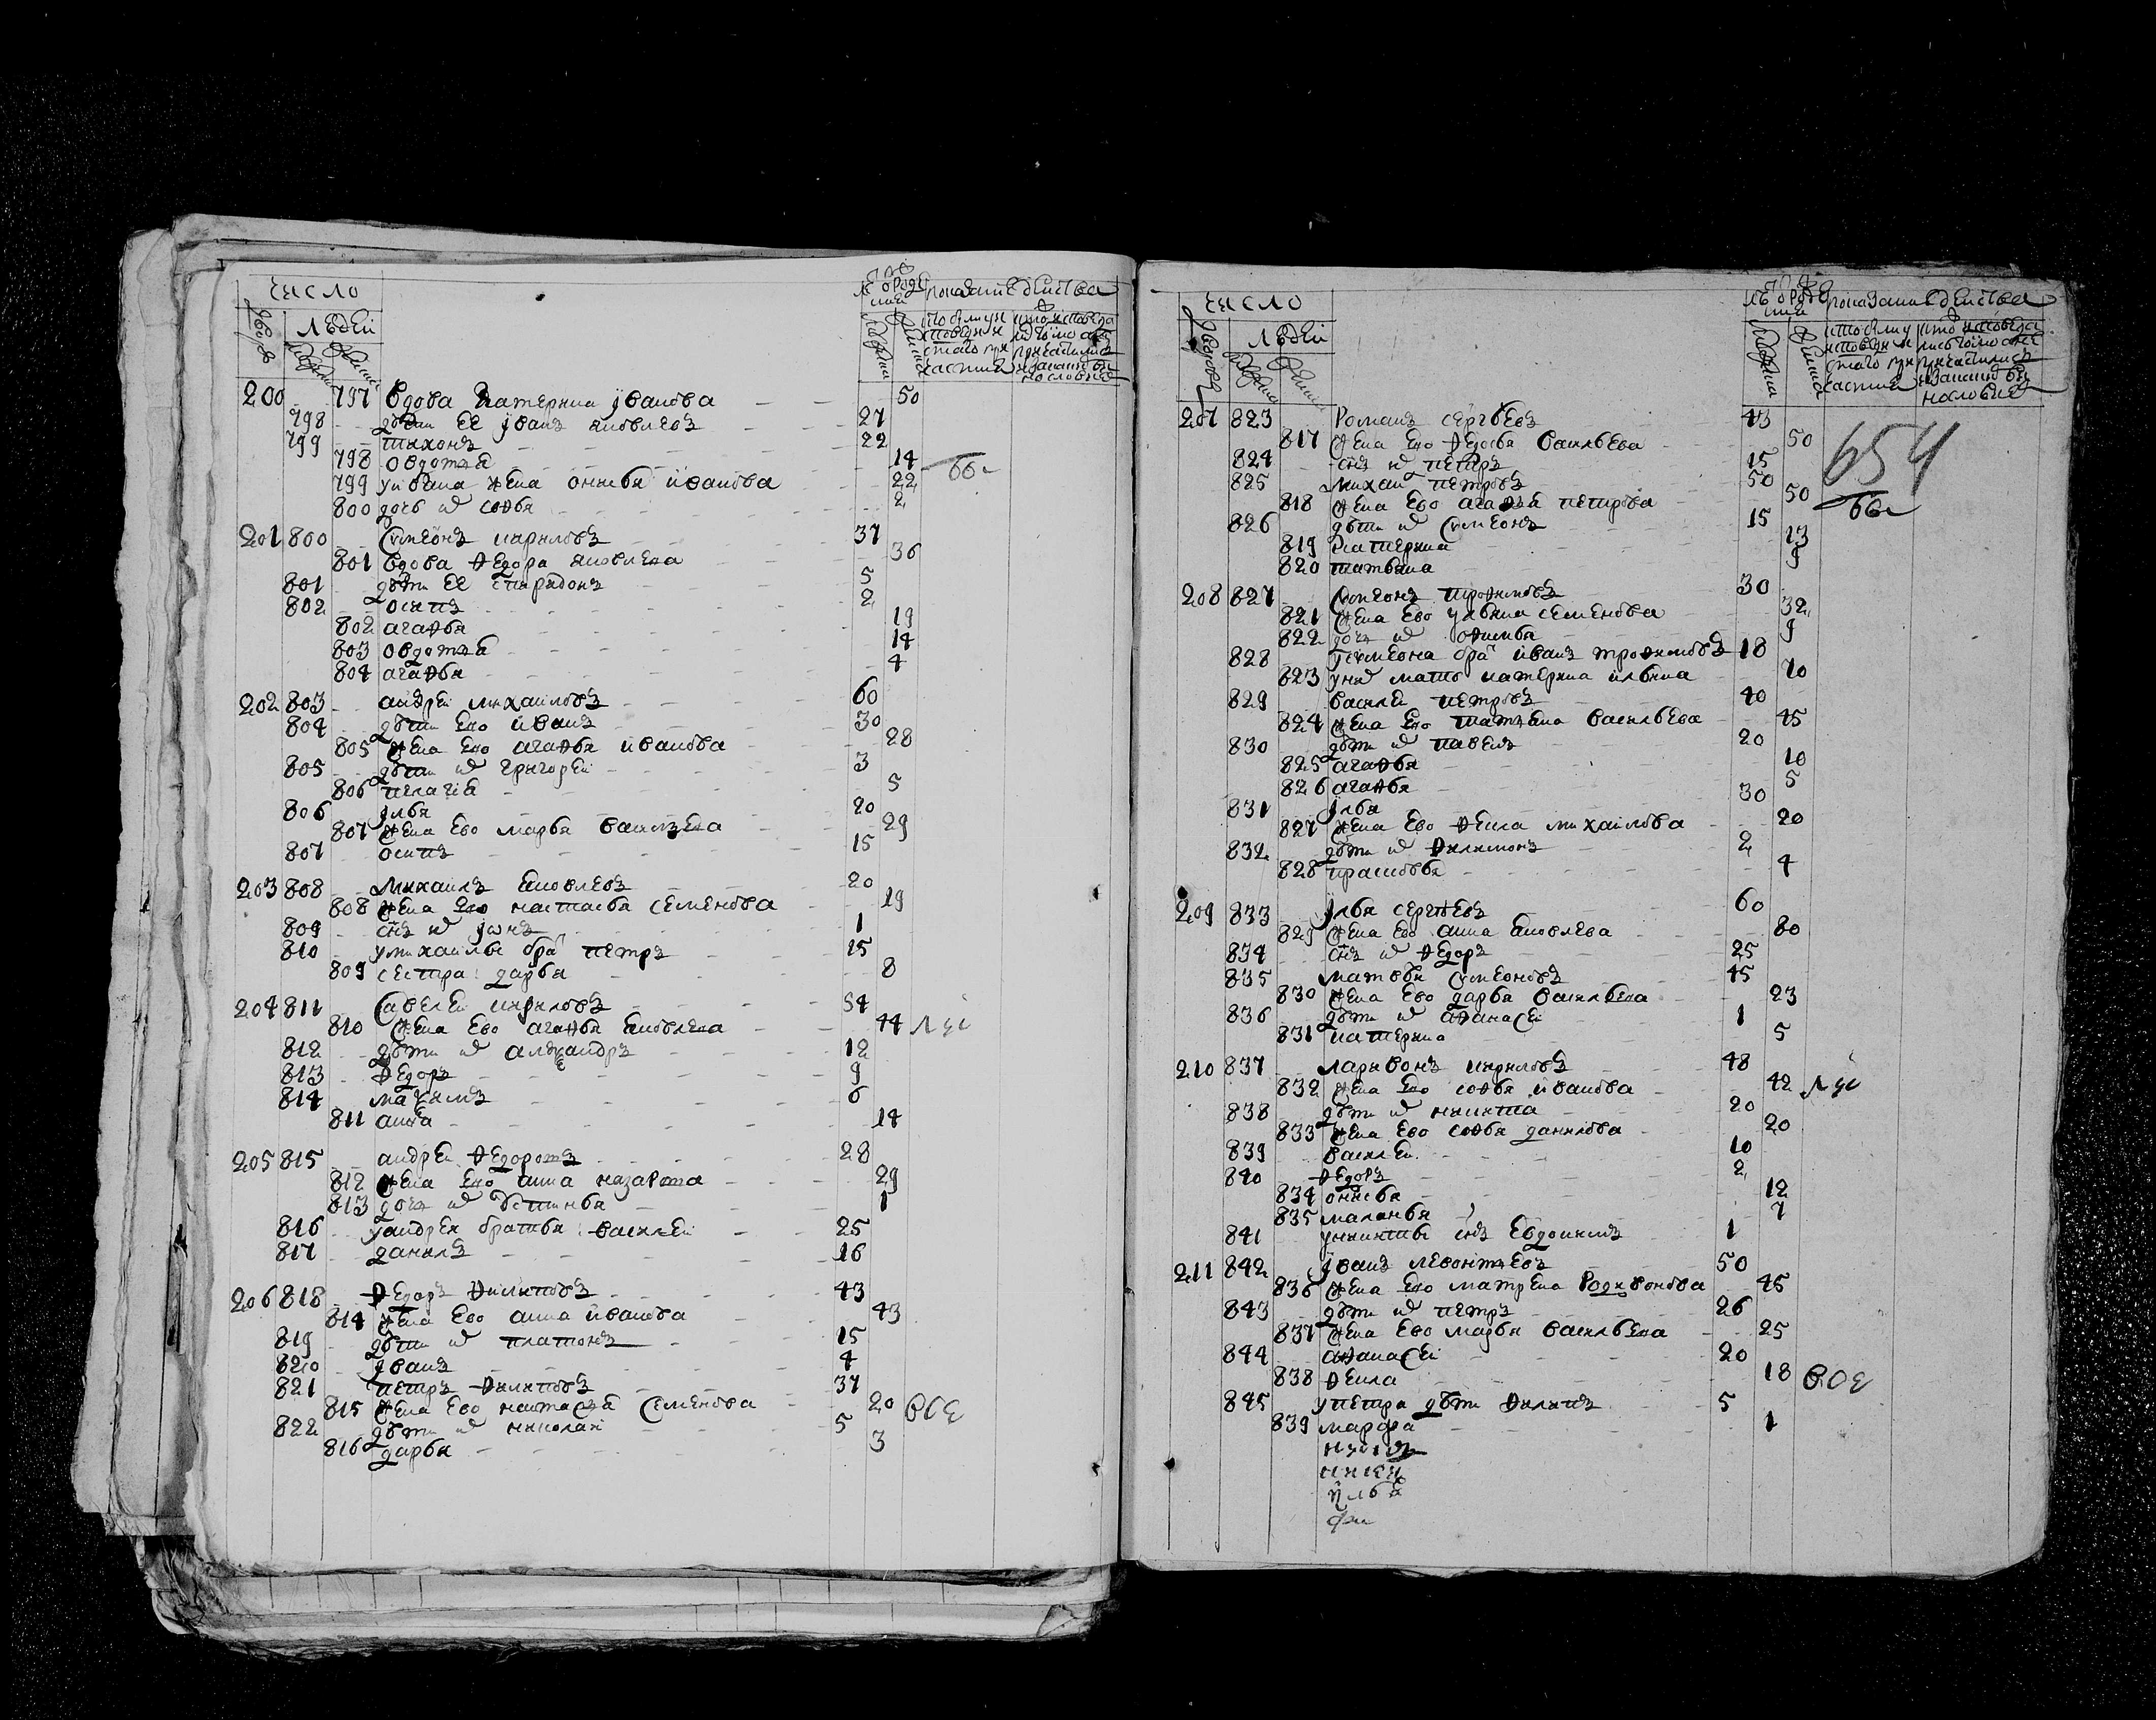 число
людей
200 797 вдова Катерина Иванова 50
798 дѣти ее Иванъ Яковлевъ 27
799 тихонъ 22
798 овдотья 14
799 у ивана жена онисья иванова 22
800 дочь их софья 2
201 800 Симеонъ кириловъ 37
801 вдова Федора яковлева 36
801 дѣти ее спиридонъ 5
802 осипъ 2
802 агафья 19
803 овдотья 14
804 агафья 4
202 803 андрей михаиловъ 60
804 дѣти ево иванъ 30
805 жена ево агафья иванова 28
805 дѣти их григорей 3
806 пелагія 5
806 Илья 20
807 жена ево марья васильева 29
807 осипъ 15
203 808 Михаилъ яковлевъ 20
808 жена ево настасья семенова 19
809 снъ их Іонъ 1
810 у михаилы бра петръ 15
809 сестра дарья 8
204 811 Савелей кириловъ 54
810 жена ево агафья яковлева 44
812 дѣти их алеѯандръ 12
813 Федоръ 9
814 маѯимъ 6
811 анна 14
205 815 андрей Федоровъ 28
812 жена ево анна назарова 29
813 дочь их устинья 1
816 у андрея братья василей 25
817 данилъ 16
206 818 Федоръ Филиповъ 43
814 жена ево анна иванова 43
819 дѣти их платонъ 15
820 Иванъ 4
821 петръ Филиповъ 37
815 жена ево настасья Семенова 20
822 дѣти их николай 5
816 дарья 3
число
людей
654
207 823 Романъ сергѣевъ 43
817 жена ево Федосья васильева 50
824 снъ их петръ 15
825 михаи петровъ 50
818 жена ево агафья петрова 50
826 дѣти их Симеонъ 15
819 Катерина 13
820 татьяна 9
208 827 Симеонъ трофимовъ 30
821 жена ево ульяна семенова 32
822 дочь их офимья 9
828 у симеона бра иванъ трофимовъ 18
823 у них мать катерина ильина 70
829 василей петровъ 40
824 жена ево татьяна васильева 45
830 дѣти их павелъ 20
825 агафья 10
826 агафья 5
831 Илья 30
827 жена ево Фекла михаилова 20
832 дѣти их Филимонъ 2
828 прасковья 4
209 833 Илья сергѣевъ 60
829 жена ево анна яковлева 80
834 снъ их Федоръ 25
835 матвѣй Симеоновъ 45
830 жена ево дарья васильева 23
836 дѣти их афанасей 1
831 катерина 5
210 837 ларивонъ кириловъ 48
832 жена ево софья иванова 42
838 дѣти их никита 20
833 жена ево софья данилова 20
839 василей 10
840 Федоръ 2
834 онисья 12
835 маланья 7
841 у никиты снъ Евдокимъ 1
211 842 Иванъ левонтьевъ 50
836 жена ево матрена Родивонова 45
843 дѣти их петръ 26
837 жена ево марья васильева 25
844 афанасей 20
838 Фекла 18
845 у петра дѣти Филипъ 5
839 марфа 1